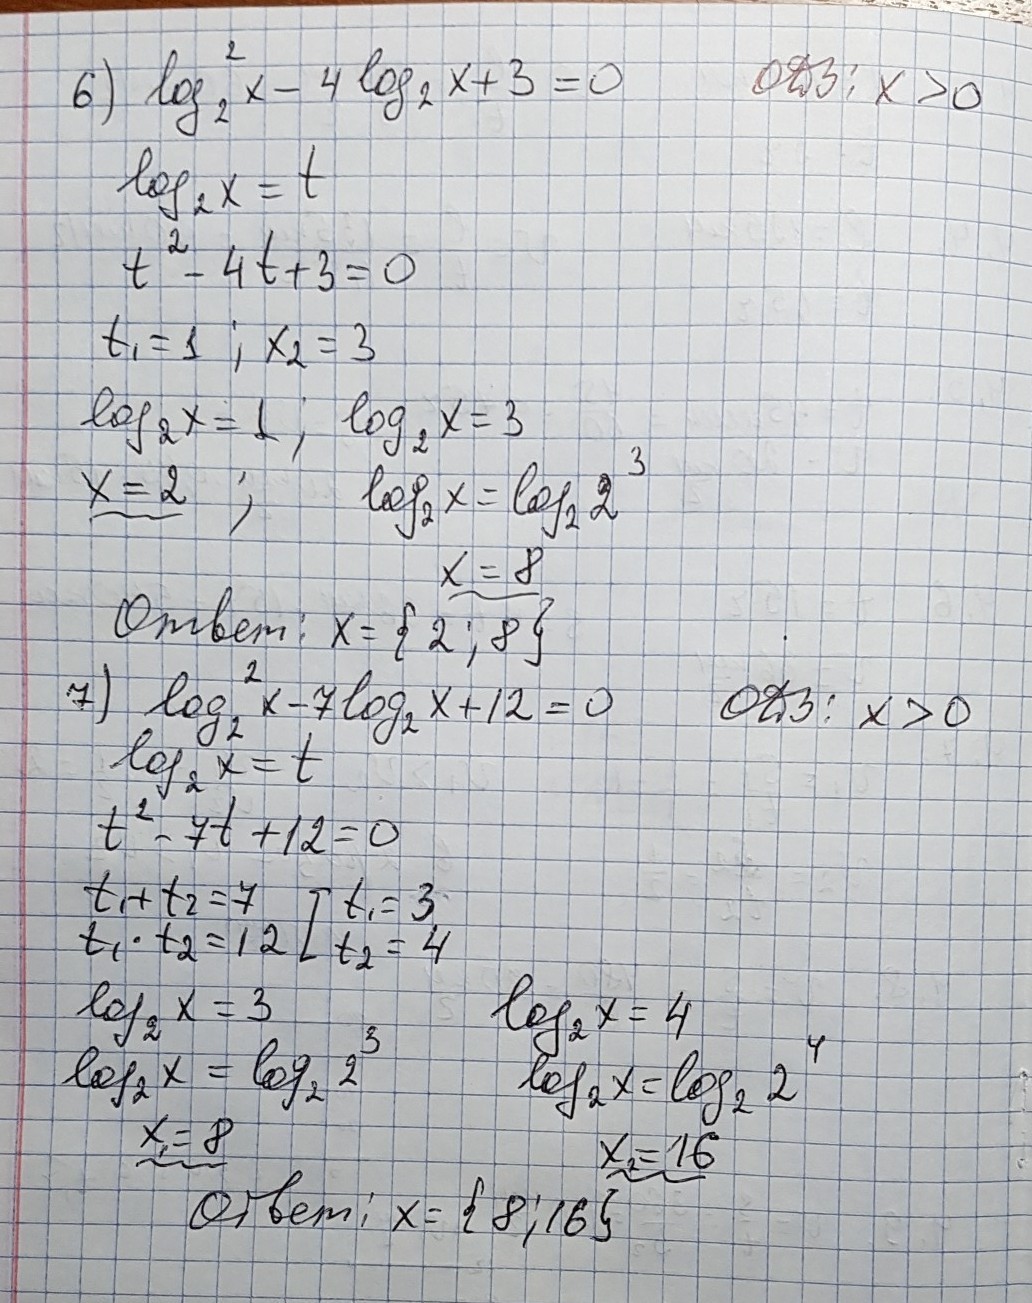 6) log₂²x - 4log₂x + 3 = 0 ОДЗ: x > 0
log₂x = t
t² - 4t + 3 = 0
t₁ = 1 ; x₂ = 3
log₂x = 1 ; log₂x = 3
x = 2 ; log₂x = log₂2³
x = 8
Ответ: x = {2; 8}
7) log₂²x - 7log₂x + 12 = 0 ОДЗ: x > 0
log₂x = t
t² - 7t + 12 = 0
t₁ + t₂ = 7 [ t₁ = 3
t₁ · t₂ = 12 [ t₂ = 4
log₂x = 3 log₂x = 4
log₂x = log₂2³ log₂x = log₂2⁴
x₁ = 8 x₂ = 16
Ответ: x = {8; 16}